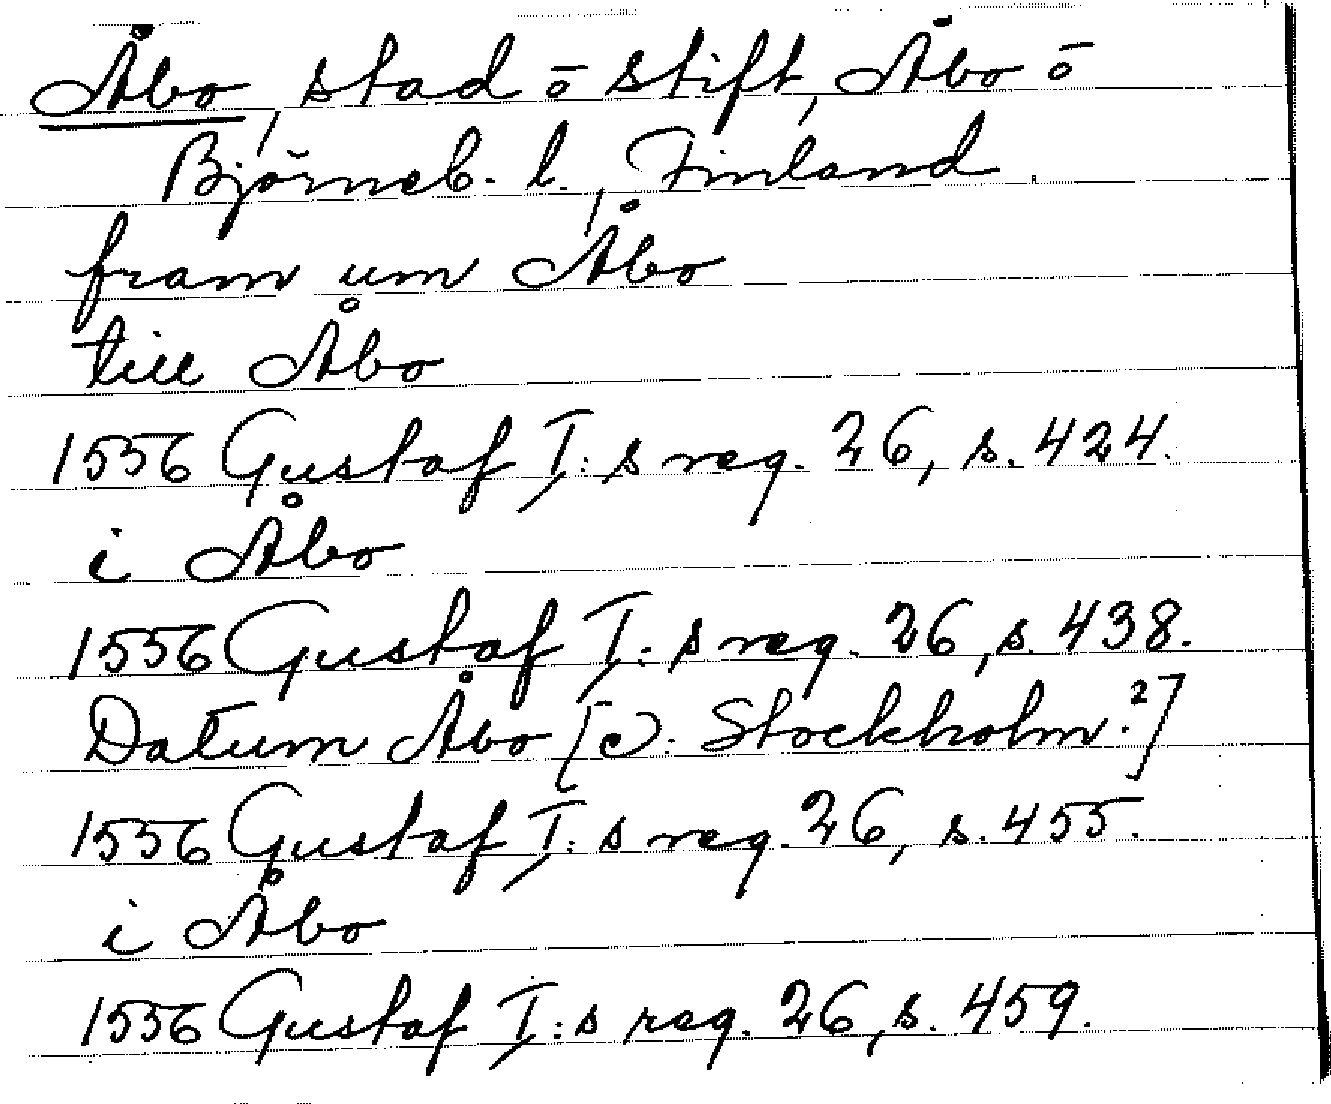 Åbo, stad ō stift, Åbo ō
Björneb. l., Finland.
fram um Åbo
till Åbo
1556 Gustaf I:s reg. 26, s. 424.
i Åbo
1556 Gustaf I:s reg. 26, s. 438.
Datum Åbo [o: Stockholm?]
1556 Gustaf I:s reg. 26, s. 455.
i Åbo
1556 Gustaf I:s reg. 26, s. 459.